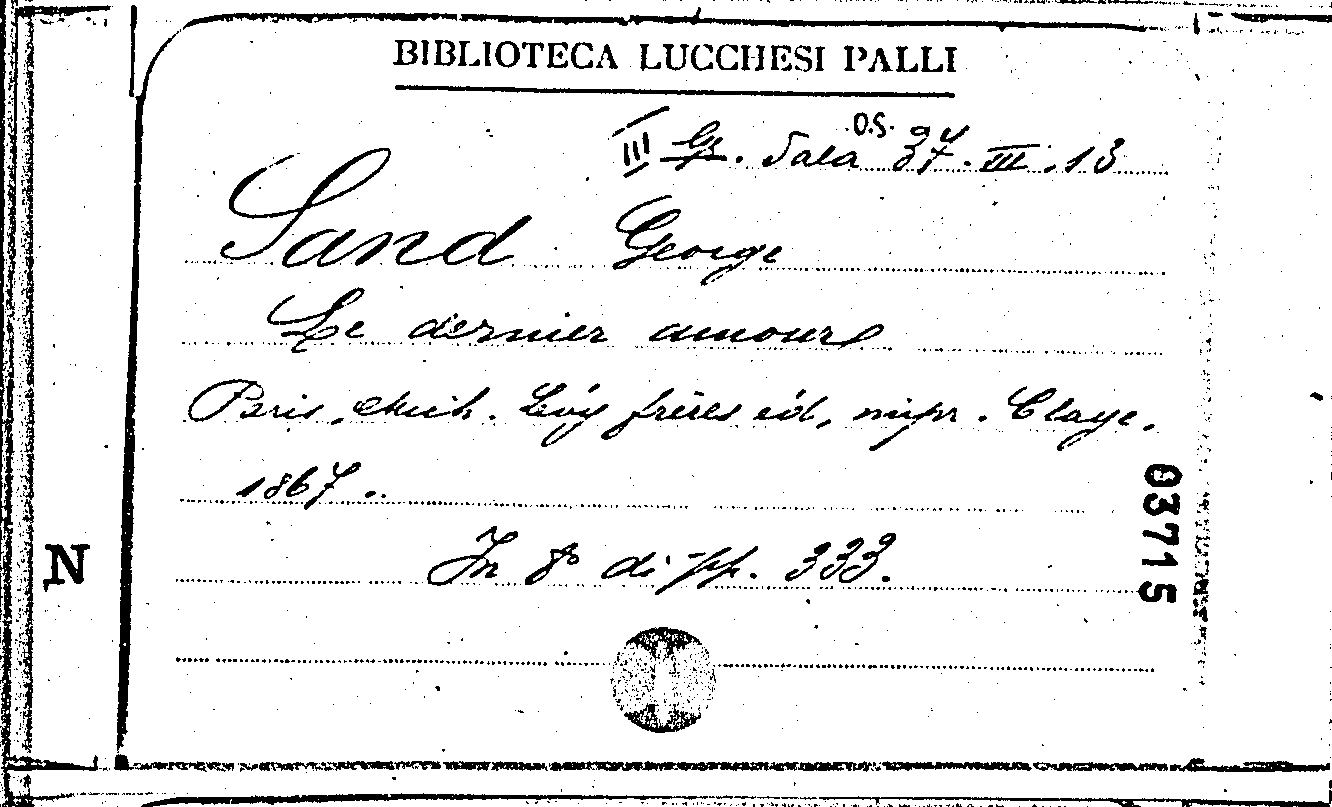 BIBLIOTECA LUCCHESI PALLI
O.S.
III Gr. Sala 37. III. 13
Sand George
Le dernier amour
Paris, Mich. Lévy frères éd, impr. Claye.
1867..
In 8° di pp. 333.
03715
N